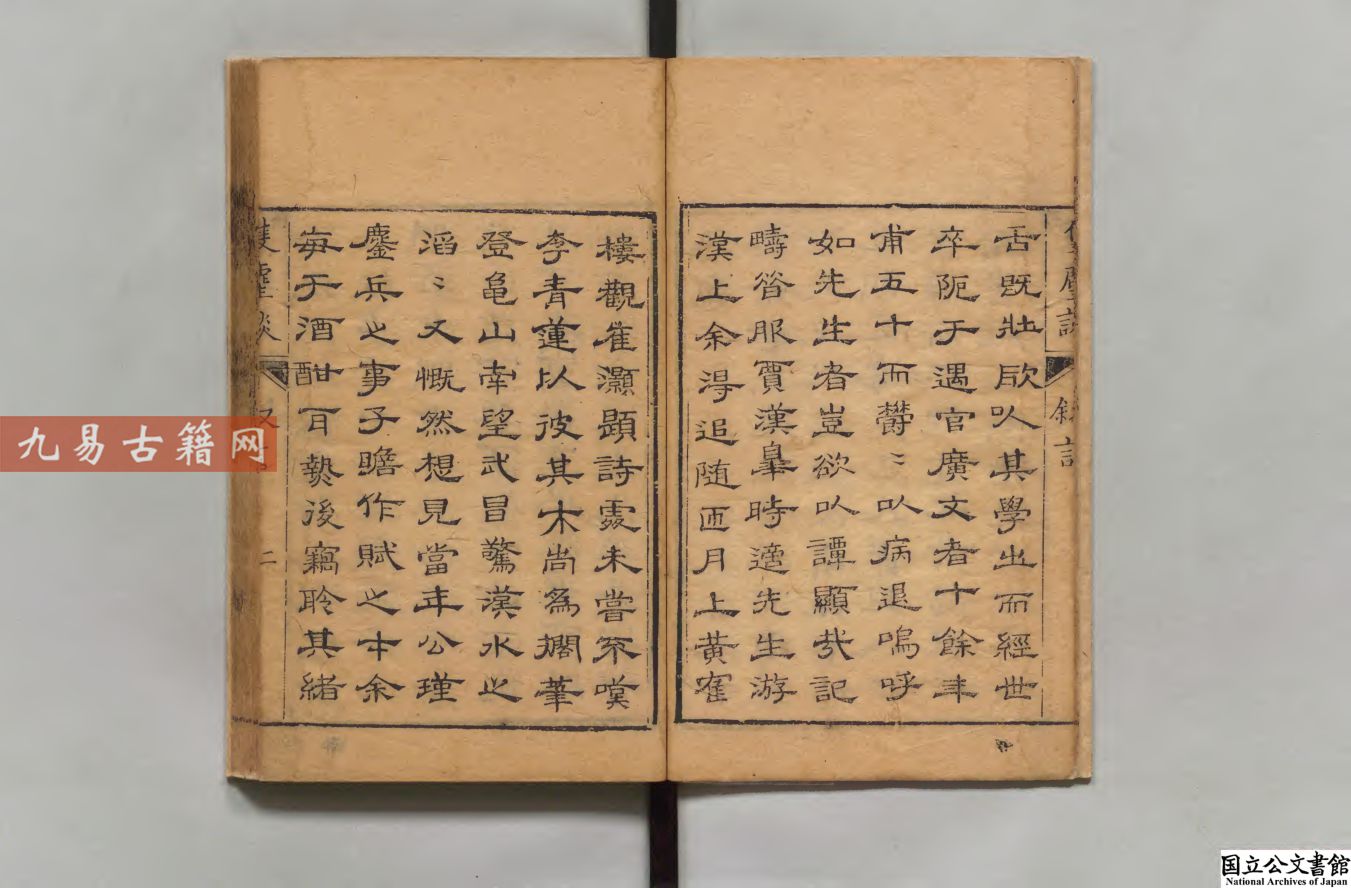 舌既壯欣以其學出而經世
卒阨于遇官廣文者十餘年
甫五十而鬱〻以病退嗚呼
如先生者豈欲以譚顯哉記
疇昔服賈漢臯時適先生游
漢上余淂追随匝月上黄寉
樓觀崔灝題詩處未嘗不嘆
李青蓮以彼其才尚為擱筆
登龜山南望武昌驚漢水之
滔〻又慨然想見當年公瑾
鏖兵之事子瞻作賦之才余
每于酒酣耳熱後竊聆其緒
叙言
雙麈談
二
九易古籍网
国立公文書館
National Archives of Japan